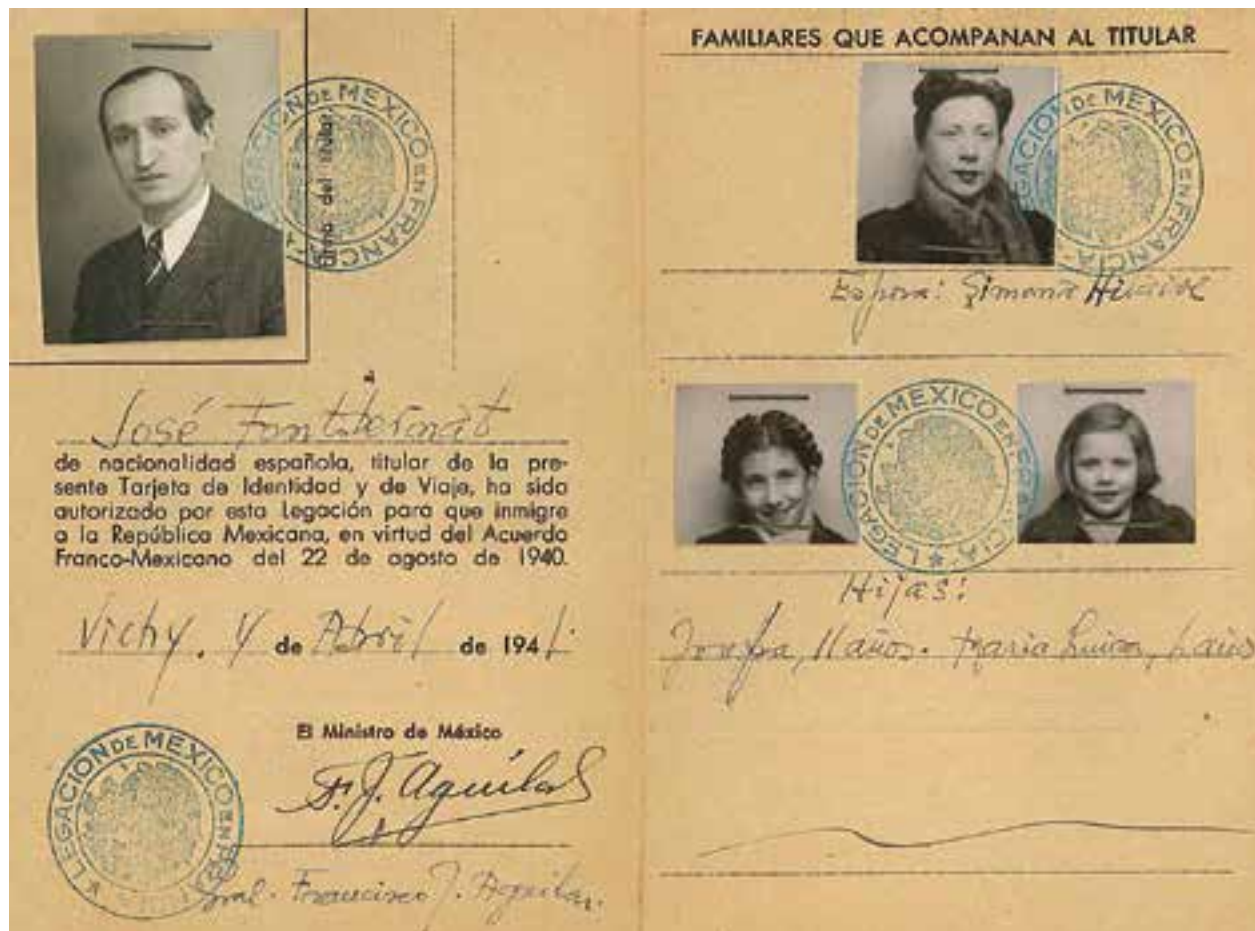 LEGACION DE MEXICO EN FRANCIA
Firma del titular
José Fontbernat
de nacionalidad española, titular de la pre-
sente Tarjeta de Identidad y de Viaje, ha sido
autorizado por esta Legación para que inmigre
a la República Mexicana, en virtud del Acuerdo
Franco-Mexicano del 22 de agosto de 1940.
Vichy. 4 de Abril de 1941.
LEGACION DE MEXICO EN
El Ministro de México
F. J. Aguilar
Gral. Francisco J. Aguilar.
FAMILIARES QUE ACOMPAÑAN AL TITULAR
LEGACION DE MEXICO EN FRANCIA
Esposa: Simona
LEGACION DE MEXICO EN FRANCIA
Hijas:
Josefa, 11 años. Maria Luisa, años